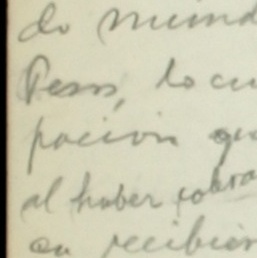 do mund
Pero, lo cu
pación qu
al haber cobra
en recibier